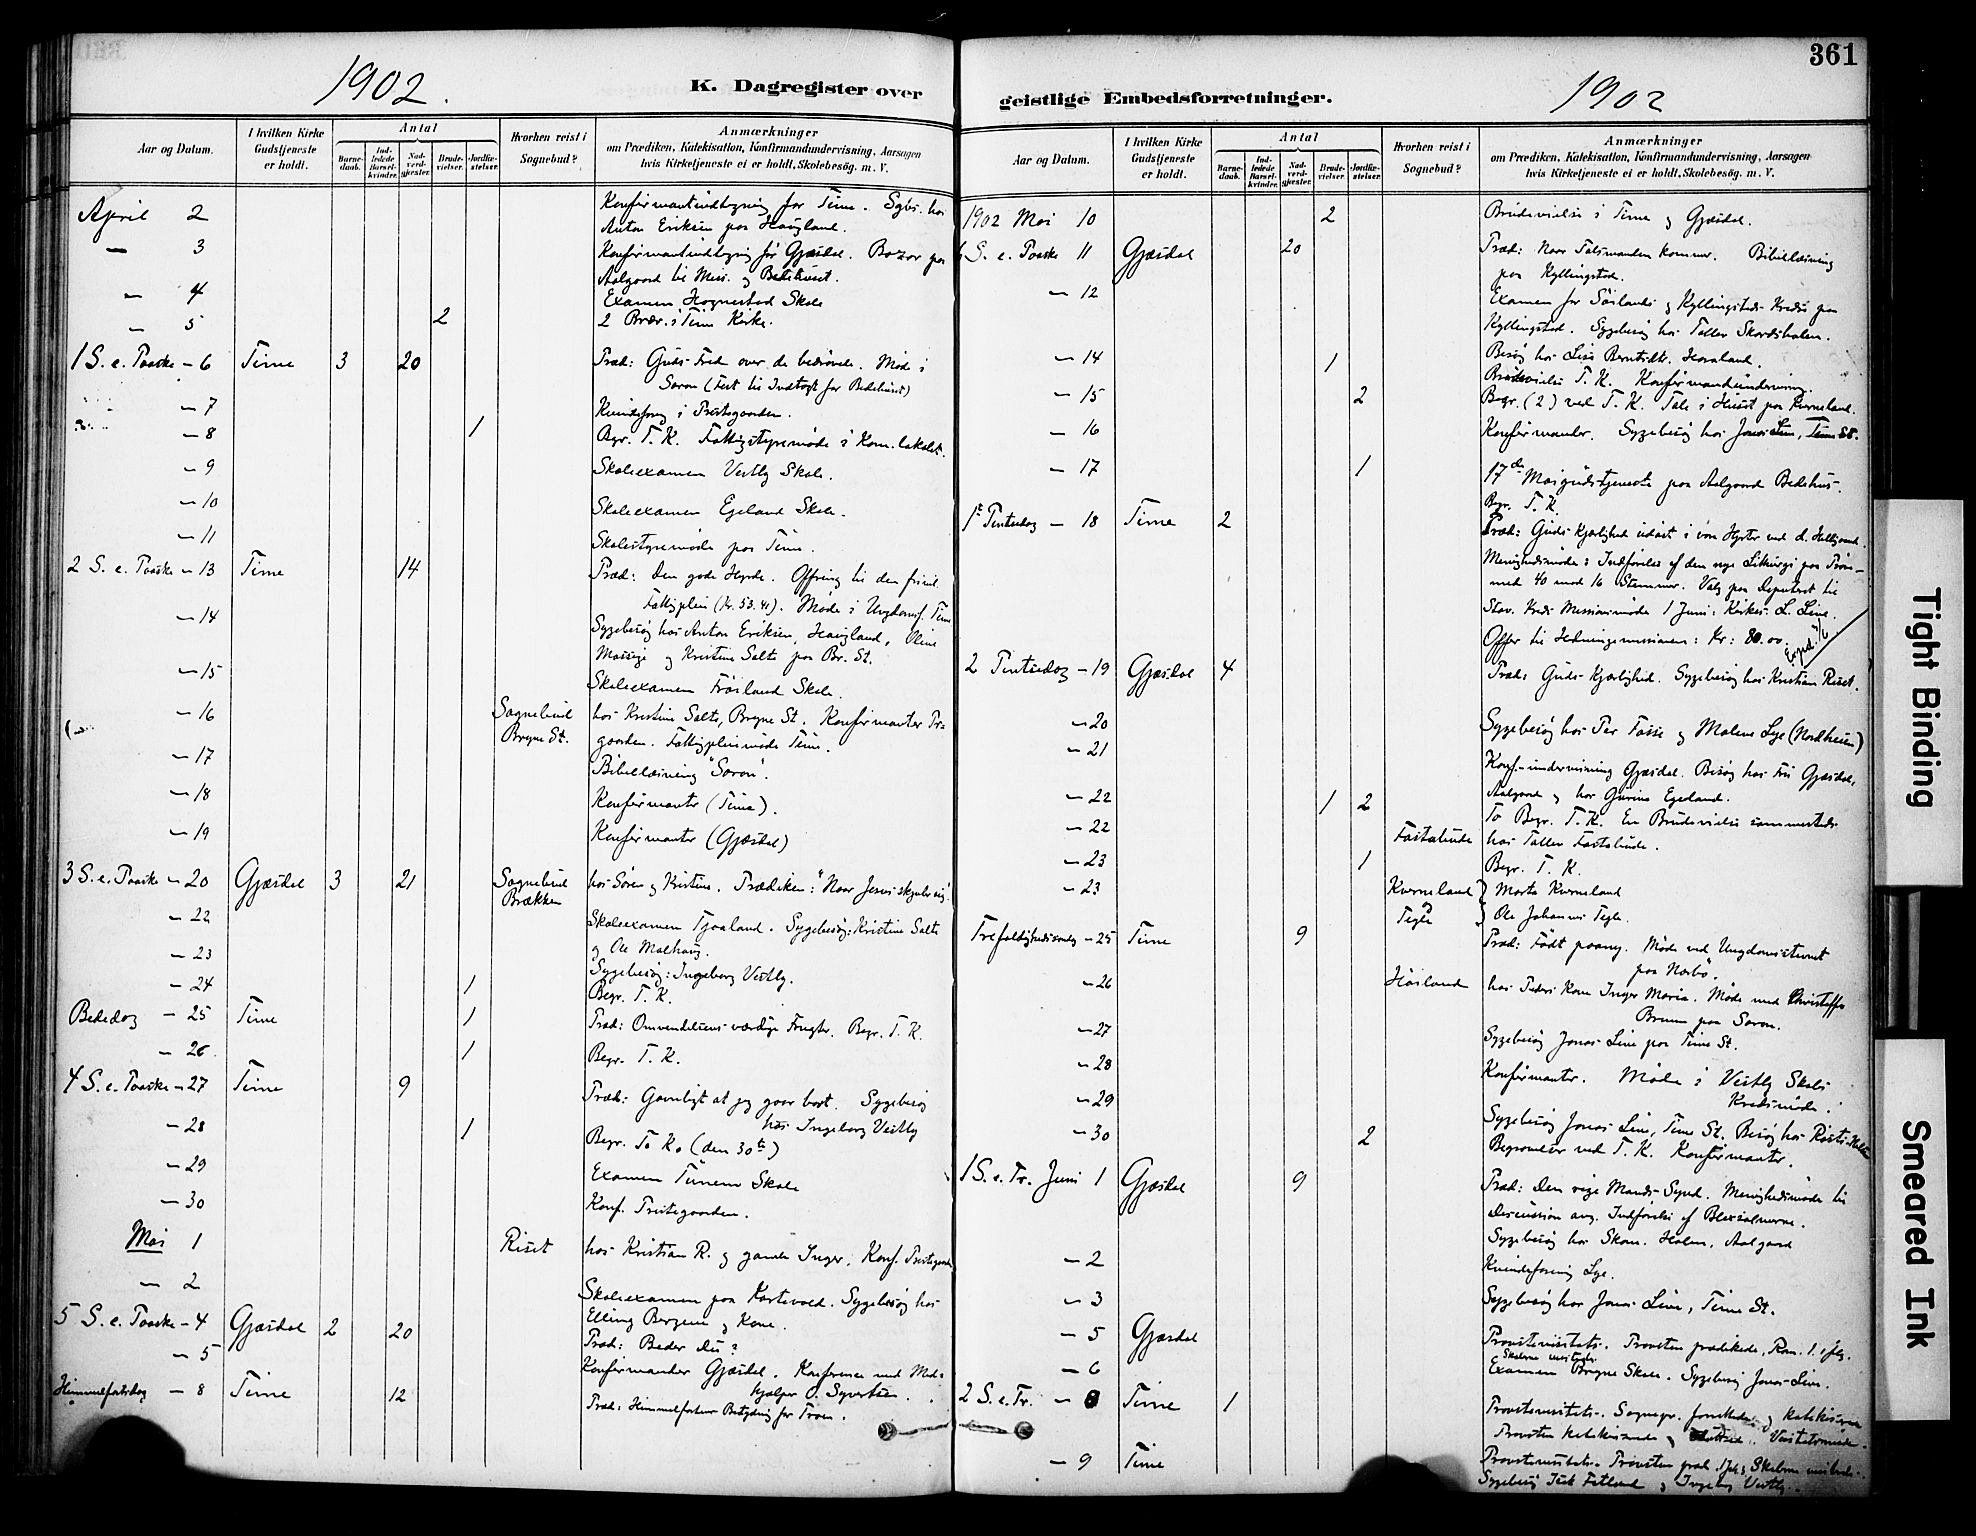 361
1902.
K. Dagregister over
Aar og Datum.
I hvilken Kirke Gudstjeneste er holdt.
Antal
Barnedaab.
Indledede Barselkvinder.
Nadverdgjester.
Brudevielser.
Jordfæstelser.
Hvorhen reist i Sognebud?
Anmærkninger
om Prædiken, Katekisation, Konfirmandundervisning, Aarsagen
hvis Kirketjeneste ei er holdt, Skolebesøg. m. V.
April 2 Konfirmantindtegning for Time. Sgbs. hos
Anton Eriksen paa Haugland.
— 3 Konfirmantindtegning for Gjæsdal. Bazar paa
Aalgaard til Miss. og Bedehuset.
— 4 Examen Hognestad Skole
— 5 2 2 Brev. i Time Kirke.
1 S. e. Paaske — 6 Time 3 20 Præd: Guds Fred over de bedrøvede. Møde i
Saron (Fest til Indtægt for Bedehuset)
— 7 Kvindeforg i Prestegaarden.
— 8 1 Begr. T. K. Fattigstyremøde i Kom. lokalet.
— 9 Skoleexamen Vestly Skole.
— 10 Skoleexamen Egeland Skole.
— 11 Skolestyremøde paa Time.
2 S. e. Paaske — 13 Time 14 Præd: Den gode Hyrde. Offring til den frivil.
Fattigpleie (Kr. 53.41). Møde i Ungdomsf. Time
— 14 Sygebesøg hos Anton Eriksen, Haugland, Oline
Mossige og Kristine Salte paa Br. St.
— 15 Skoleexamen Frøiland Skole.
— 16 Sognebud Bryne St. hos Kristine Salte, Bryne St. Konfirmanter Pr-
gaarden. Fattigpleiemøde Time.
— 17 Bibellæsning "Saron".
— 18 Konfirmanter (Time).
— 19 Konfirmanter (Gjæsdal)
3 S. e. Paaske — 20 Gjæsdal 3 21 Sognebud Brækken hos Søren og Kristine. Prædiken: "Naar Jesus skjuler sig".
— 22 Skoleexamen Tjaaland. Sygebesøg: Kristine Salte
og Ole Malhaug.
— 23 Sygebesøg: Ingeborg Vestly.
— 24 1 Begr. T. K.
Bededag — 25 Time 1 Præd: Omvendelsens værdige Frugter. Begr. T. K.
— 26 1 Begr. T. K.
4 S. e. Paaske — 27 Time 9 Præd: Gavnligt at jeg gaar bort. Sygebesøg
hos Ingeborg Vestly
— 28 1 Begr. T. K. (den 30te)
— 29 Examen Time Skole
— 30 Konf. Prestegaarden.
Mai 1 Riset hos Kristian R. og gamle Inger. Konf. Prestegaarden
— 2 Skoleexamen paa Kartevold. Sygebesøg hos
Elling Bergene og Kone.
5 S. e. Paaske — 4 Gjæsdal 2 20 Præd: Beder Du?
— 5 Konfirmander Gjæsdal. Konference med Med-
hjælper O. Syvertsen.
Himmelfartsdag — 8 Time 12 Præd: Himmelfartens Betydning for Troen.
geistlige Embedsforretninger.
1902
Aar og Datum.
I hvilken Kirke Gudstjeneste er holdt.
Antal
Barnedaab.
Indledede Barselkvinder.
Nadverdgjester.
Brudevielser.
Jordfæstelser.
Hvorhen reist i Sognebud?
Anmærkninger
om Prædiken, Katekisation, Konfirmandundervisning, Aarsagen
hvis Kirketjeneste ei er holdt, Skolebesøg. m. V.
1902 Mai 10 2 Brudevielser i Time og Gjæsdal.
6 S. e. Paaske 11 Gjæsdal 20 Præd: Naar Talsmanden kommer. Bibellæsning
paa Kyllingstad.
— 12 Examen for Søilands og Kyllingstads Kreds paa
Kyllingstad. Sygebesøg hos Tollev
Besøg hos Lise Berntsdtr. Haaland.
— 14 1 Brudevielse T. K. Konfirmandundervisning.
— 15 2 Begr. (2) ved T. K. Tale i Huset paa Kverneland.
— 16 Konfirmander. Sygebesøg hos Jonas Line, Time St.
— 17 1 17de Maigudstjeneste paa Aalgaard Bedehus.
Begr. T. K.
1ste Pintsedag — 18 Time 2 Præd: Guds Kjærlighed udøst i vore Hjerter ved d. Helligaand.
Menighedsmøde: Indførelse af den nye Liturgi paa Prøve
med 40 mod 16 Stemmer. Valg paa Deputeret til
Stav. Kreds Missionsmøde 1 Juni: Kirkes. L. Line.
Offer til Hedningemissionen: Kr: 80.00.
2 Pintsedag — 19 Gjæsdal 4 Præd: Guds Kjærlighed. Sygebesøg hos Kristian Riset.
— 20 Sygebesøg hos Per Fosse og Malene Lye (Nordheim)
— 21 Konf.-undervisning Gjæsdal. Besøg hos Gjæsdal,
Aalgaard og hos Gurine Egeland.
— 22 1 2 To Begr. T. K. En Brudevielse sammesteds
— 22 Fastalunde hos Tollev Fastalunde.
— 23 1 Begr. T. K.
— 23 Kverneland Marta Kverneland
Tegle Ole Johannes Tegle.
Trefoldighedssøndag — 25 Time 9 Præd: Født paany. Møde ved Ungdomsstevnet
paa Norbø.
— 26 Høiland hos Peders Kone Inger Maria. Møde med Christoffer
Bruun paa Saron.
— 27 Sygebesøg Jonas Line paa Time St.
— 28 Konfirmanter. Møde i Vestly Skole-
Kredsmøde.
— 29 Sygebesøg Jonas Line, Time St. Besøg hos
— 30 2 Begravelser ved T. K. Konfirmanter.
1 S. e. Tr. Juni 1 Gjæsdal 9 Præd: Den rige Mands Synd. Menighedsmøde til
Discussion ang. Indførelse af Blixsalmerne.
Sygebesøg hos Skom. Holen, Aalgaard
— 2 Kvindeforening Lye.
— 3 Sygebesøg hos Jonas Line, Time St.
— 5 Gjæsdal Provstevisitats. Provsten prædikede, Rom. 1.
Skolerne visiterede.
— 6 Examen Bryne Skole. Sygebesøg Jonas Line.
2 S. e. Tr. — 8 Time 1 Provstevisitats. Sognepr. prædikede og katekiserede
Provsten katekiserede og
— 9 Time Provstevisitats. Provsten præd. Skolerne visiterede.
Sygebesøg Fetland og Ingeborg Vestly.
Tight Binding
Smeared Ink